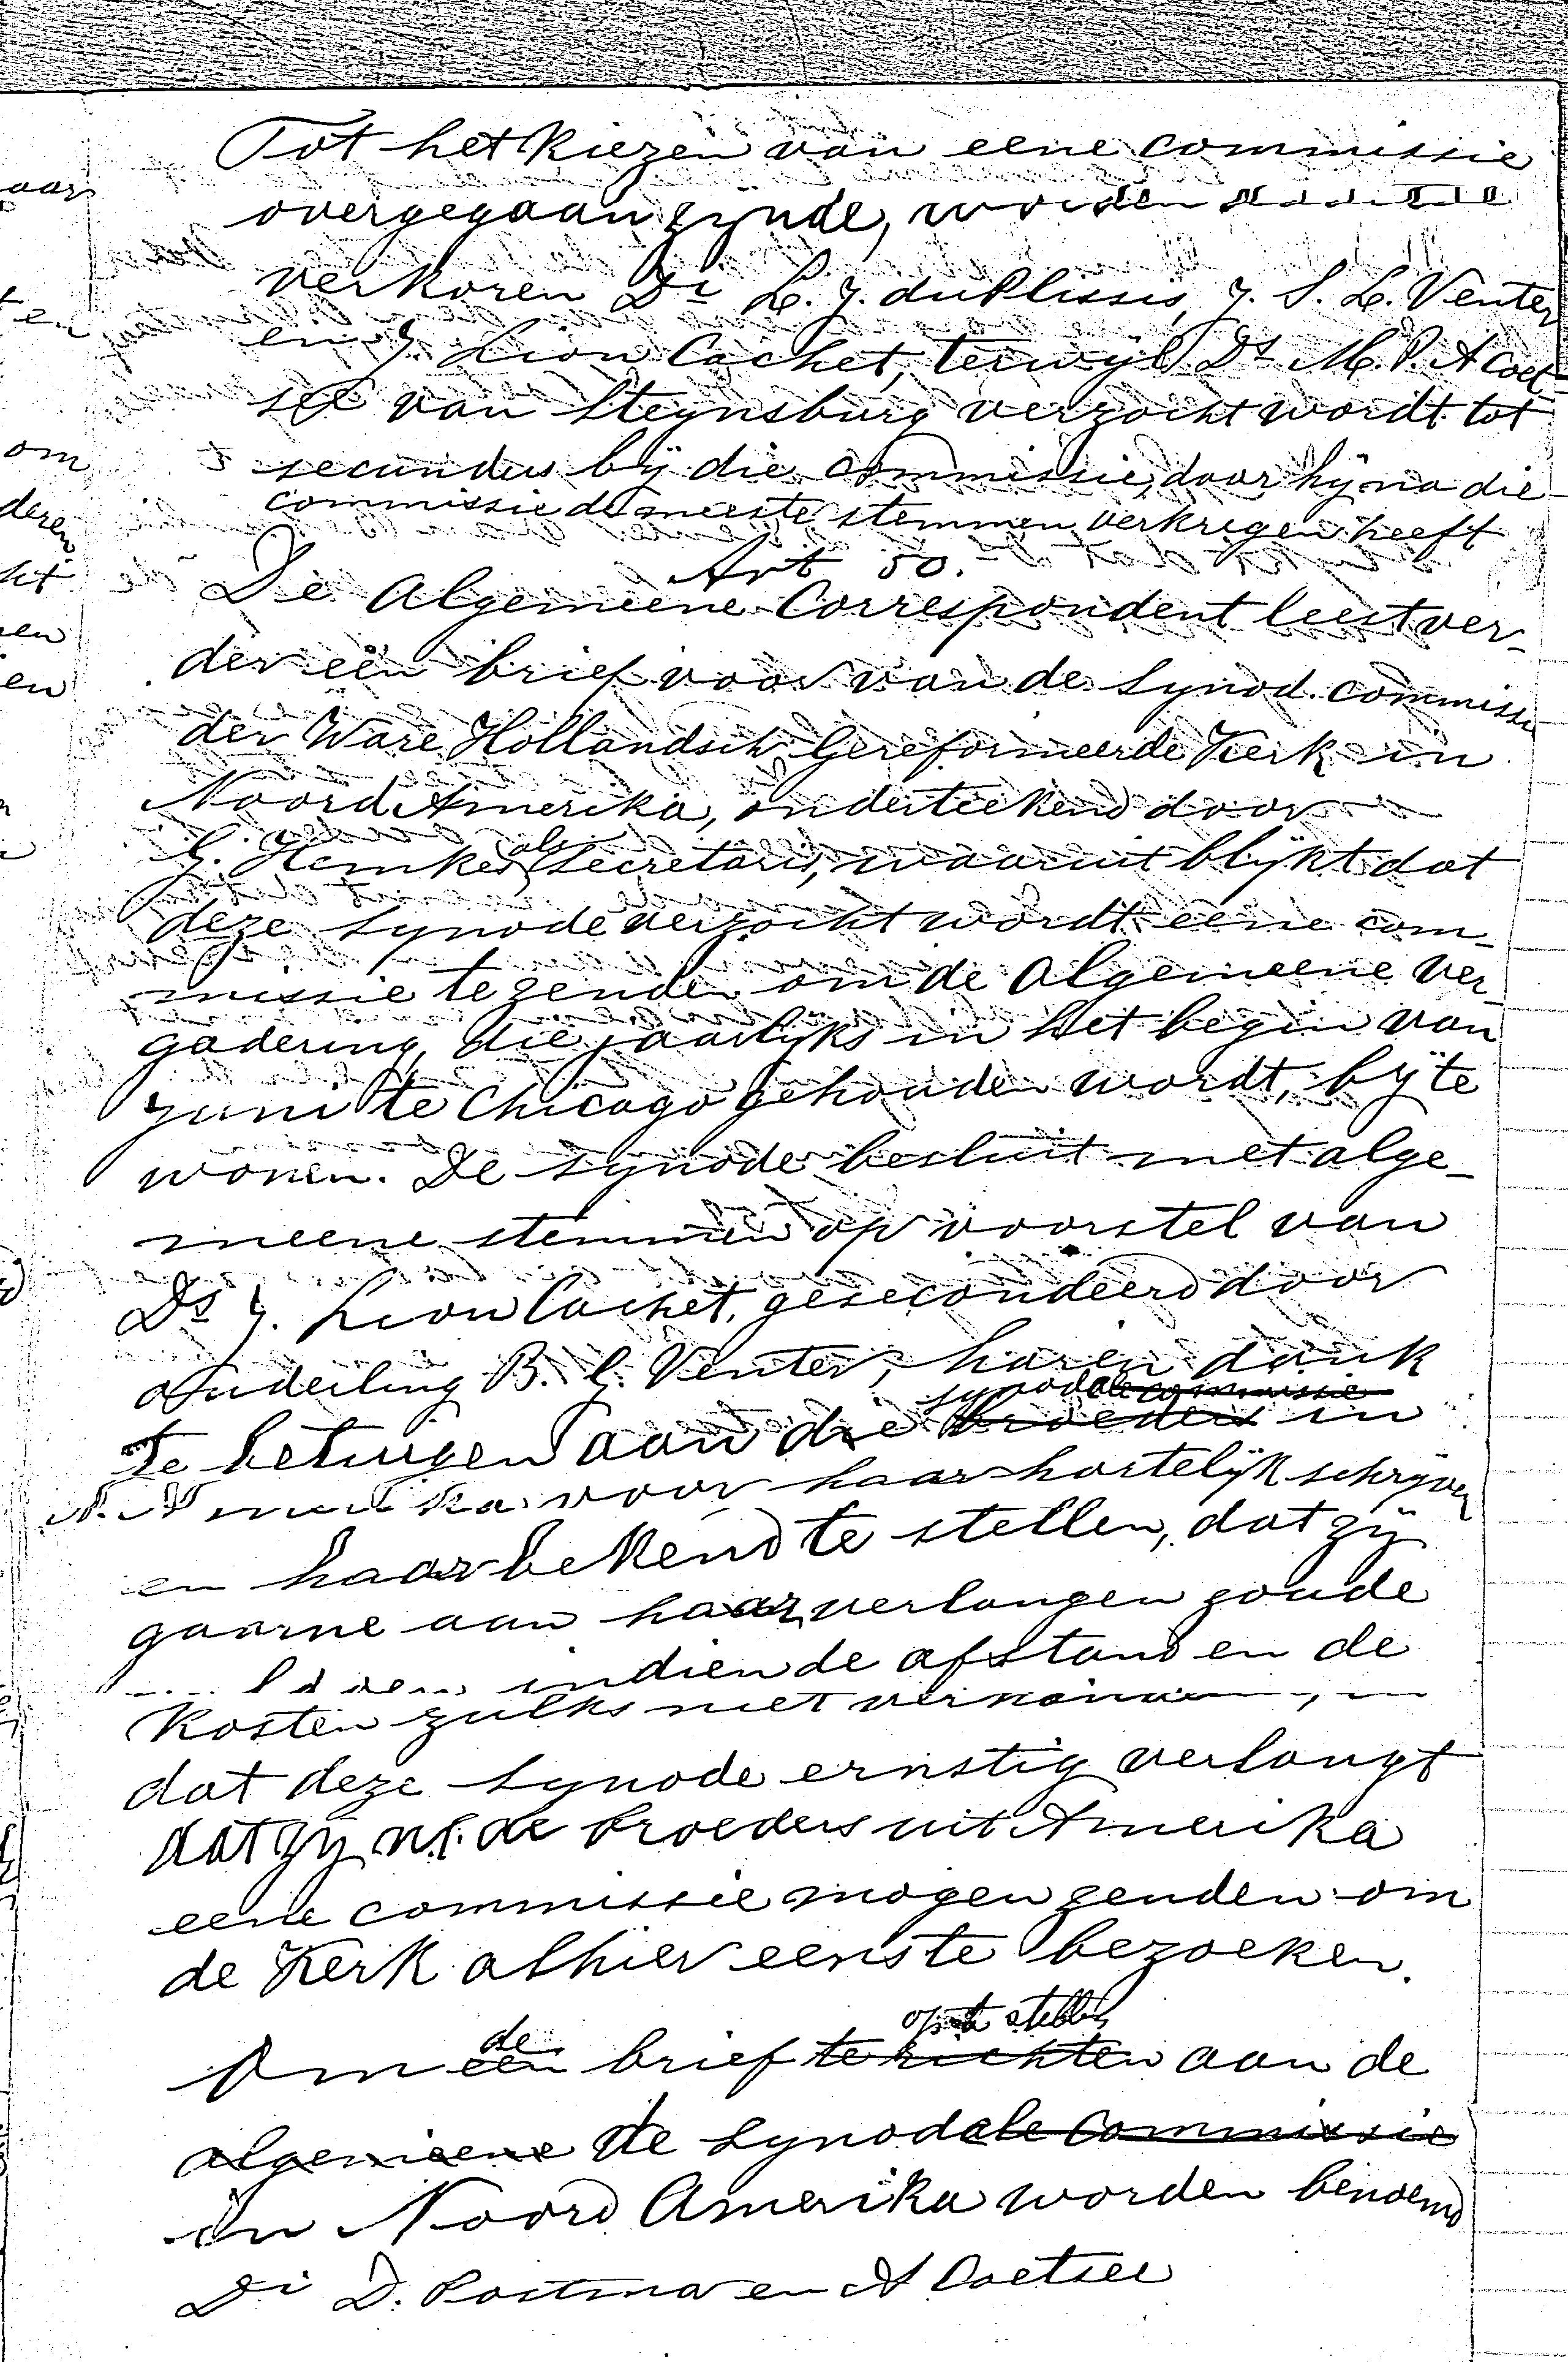 Tot het kiezen van eene commissie
overgegaan zynde, worden
verkoren Di L. J. du Plessis, J. S. L. Venter
en J. Lion Cachet, terwyl Ds M. P. A Coet-
see van Steynsburg verzocht wordt tot
secundus bij die commissie, daar hij na die
commissie de meeste stemmen verkregen heeft
Art 50.
De Algemeene Correspondent leest ver-
der een brief voor van de Synod. commissie
der Ware Hollandsch Gereformeerde Kerk in
Noord Amerika, onderteekend door
G. Hemkes als Secretaris, waaruit blijkt dat
deze Synode verzocht wordt eene com-
missie te zenden om de Algemeene Ver-
gadering, die jaarlijks in het begin van
Juni te Chicago gehouden wordt, bij te
wonen. De Synode besluit met alge-
meene stemmen op voorstel van
Ds J. Lion Cachet, gesecondeerd door
Ouderling B. J. Venter, haren dank
synodale commissie
te betuigen aan die broeders in
N. Amerika voor haar hartelijk schryven
en haar bekend te stellen, dat zij
gaarne aan haar verlangen zoude
indien de afstand en de
kosten zulks niet
dat deze Synode ernstig verlangt
dat zy nl. de broeders uit Amerika
eene commissie mogen zenden om
de Kerk alhier eens te bezoeken.
de op te stellen
Om een brief te richten aan de
algemeene de Synodale Commissie
in Noord Amerika worden benoemd
Di D. Postma en A Coetsee
aar
ten
om
deren
ht
en
en